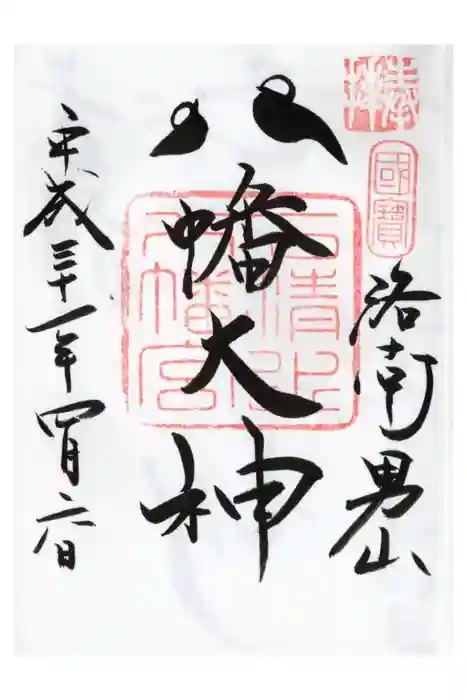 奉拝
國寶
洛南男山
八幡大神
石清水
八幡宮
平成三十一年四月六日